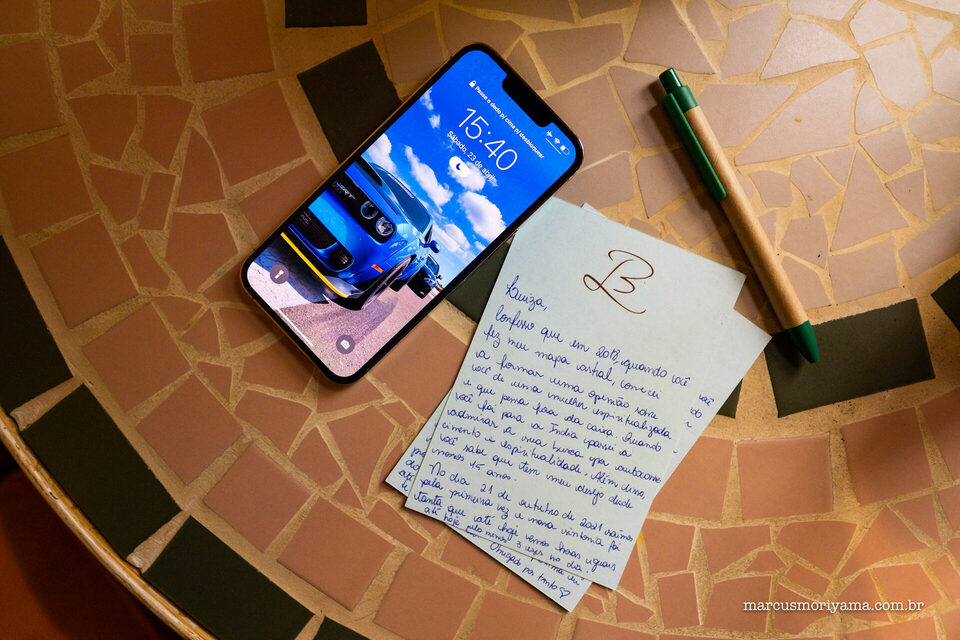 Passe o dedo p/ cima p/ desbloquear
15:40
Sábado, 23 de abril
LB
Luiza,
Confesso que em 2018, quando você
fez meu mapa astral, comecei
a formar uma opinião sobre
você de uma mulher espiritualizada
e que pensa fora da caixa. Quando
você foi para a Índia passei a
admirar a sua busca por autoconhe
cimento e espiritualidade. Além disso,
você sabe que tem meu desejo desde
menos 15 anos.
No dia 21 de outubro de 2021 saímos
pela primeira vez e nossa sintonia foi
tanta que até hoje vemos horas iguais
até hoje pelo menos 3 vezes no dia.
Obrigada por tanto ♡
marcusmoriyama.com.br